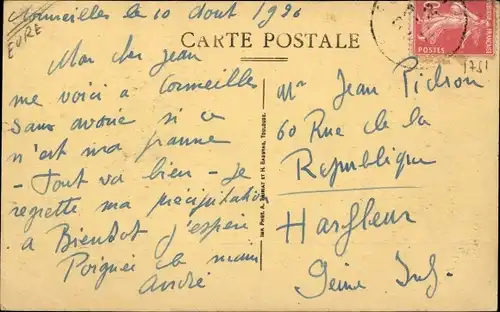 Cormeilles le 10 Aout 1926
EURE
CARTE POSTALE
POSTES
1751
Mon cher Jean
me voici à Cormeilles
sans avoir si ce
n'est ma panne
- Tout va bien - Je
regrette ma précipitation
à Bientôt j'espère
Poignée de main
André
Mr Jean Pichon
60 Rue de la
République
Harfleur
Seine Inf.